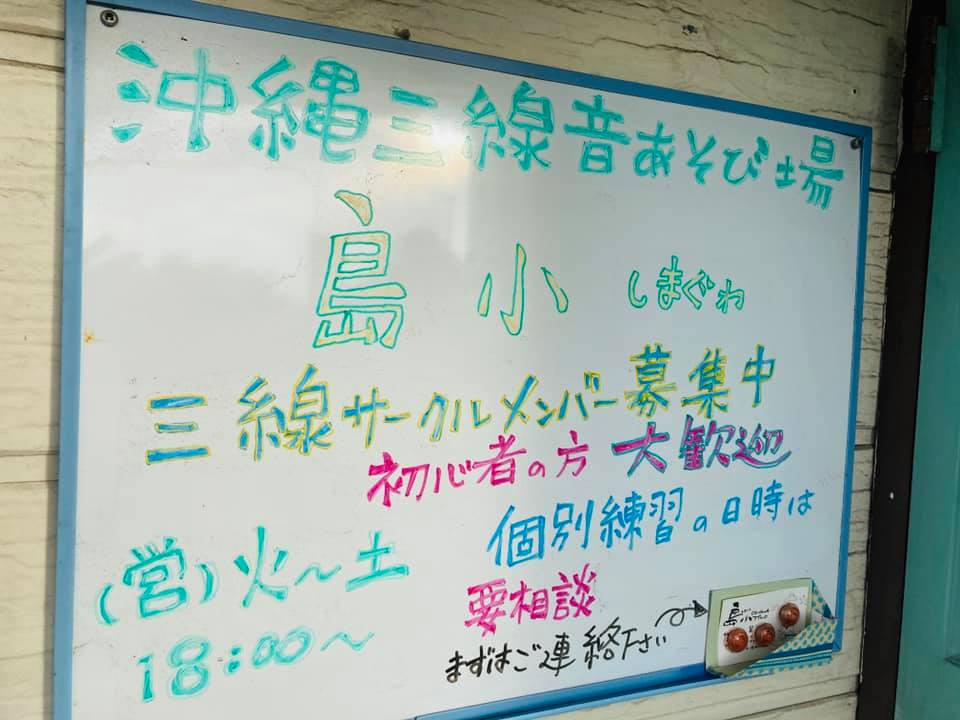 沖縄三線音あそび場
島小 しまぐわ
三線サークルメンバー募集中
初心者の方 大歓迎
個別練習の日時は
要相談
(営)火～土
18:00～
まずはご連絡下さい
島小